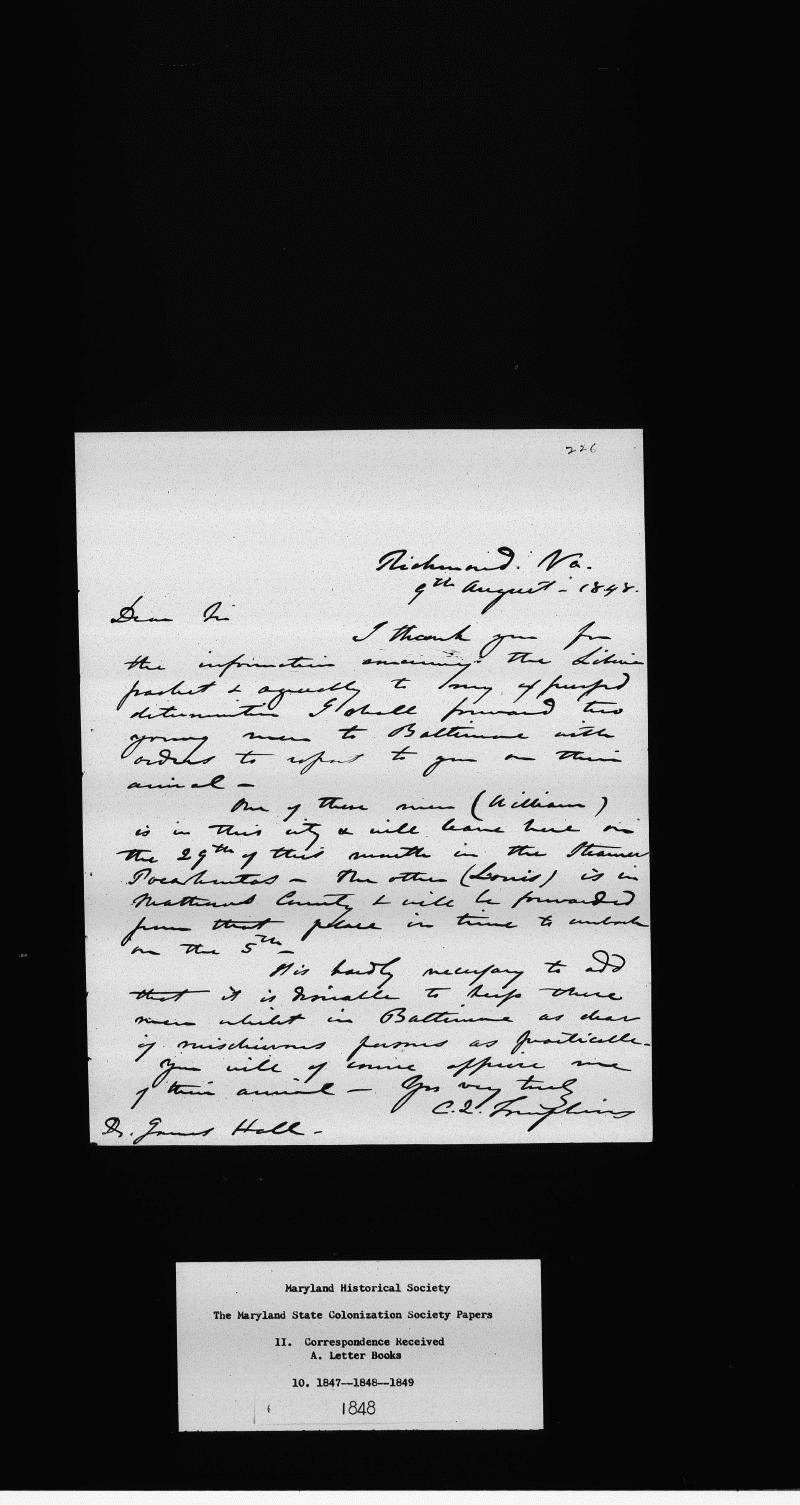 226
Richmond. Va.
9th August - 1848.
Dear Sir
I thank you for
the information concerning the Liberia
packet & agreeably to my expressed
determination I shall forward two
young men to Baltimore with
orders to report to you on their
arrival -
One of these men (William)
is in this city & will leave here on
the 29th of this month in the Steamer
Pocahontas - The other (Louis) is in
Matthews County & will be forwarded
from that place in time to embark
on the 5th -
It is hardly necessary to add
that it is desirable to keep these
men whilst in Baltimore as clear
of mischievous persons as practicable -
You will of course apprise me
of their arrival - Yrs very truly
C. Q. Tompkins
Dr. James Hall -
Maryland Historical Society
The Maryland State Colonization Society Papers
II. Correspondence Received
A. Letter Books
10. 1847--1848--1849
1848